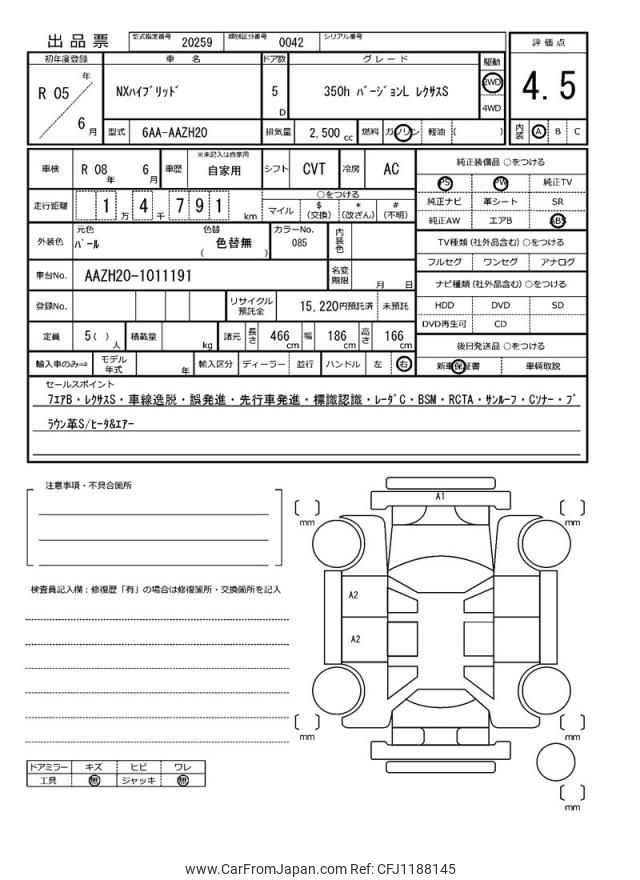 出品票 型式指定番号 20259 類別区分番号 0042 シリアル番号
評価点
4.5
内装 A B C
初年度登録 車名 ドア数 グレード 駆動
R 05 年 6 月
NXハイブリッド 5 D 350h バージョンL レクサスS 2WD 4WD
型式 6AA-AAZH20 排気量 2,500 cc 燃料 ガソリン 軽油 ( )
車検 R 08 年 6 月 車歴 ※未記入は自家用 自家用 シフト CVT 冷房 AC
純正装備品 ○をつける
PS PW 純正TV
純正ナビ 革シート SR
純正AW エアB ABS
走行距離 1 万 4 千 7 9 1 km
○をつける
マイル $ (交換) * (改ざん) # (不明)
外装色 元色 パール 色替 色替無 ( ) カラーNo. 085 内装色
TV種類 (社外品含む) ○をつける
フルセグ ワンセグ アナログ
車台No. AAZH20-1011191 名変期限 月 日
ナビ種類 (社外品含む) ○をつける
HDD DVD SD
DVD再生可 CD
登録No. リサイクル預託金 15,220円預託済 未預託
定員 5 ( ) 人 積載量 kg 諸元 長さ 466 cm 幅 186 cm 高さ 166 cm
後日発送品 ○をつける
新車保証書 車輌取説
輸入車のみ⇒ モデル年式 年 輸入区分 ディーラー 並行 ハンドル 左 右
セールスポイント
7エアB・レクサスS・車線逸脱・誤発進・先行車発進・標識認識・レーダC・BSM・RCTA・サンルーフ・Cソナー・ブ
ラウン革S/ヒータ&エアー
注意事項・不具合箇所
検査員記入欄：修復歴「有」の場合は修復箇所・交換箇所を記入
A1
A2
A2
mm
mm
mm
mm
mm
ドアミラー キズ ヒビ ワレ
工具 無 ジャッキ 無
www.CarFromJapan.com Ref: CFJ1188145